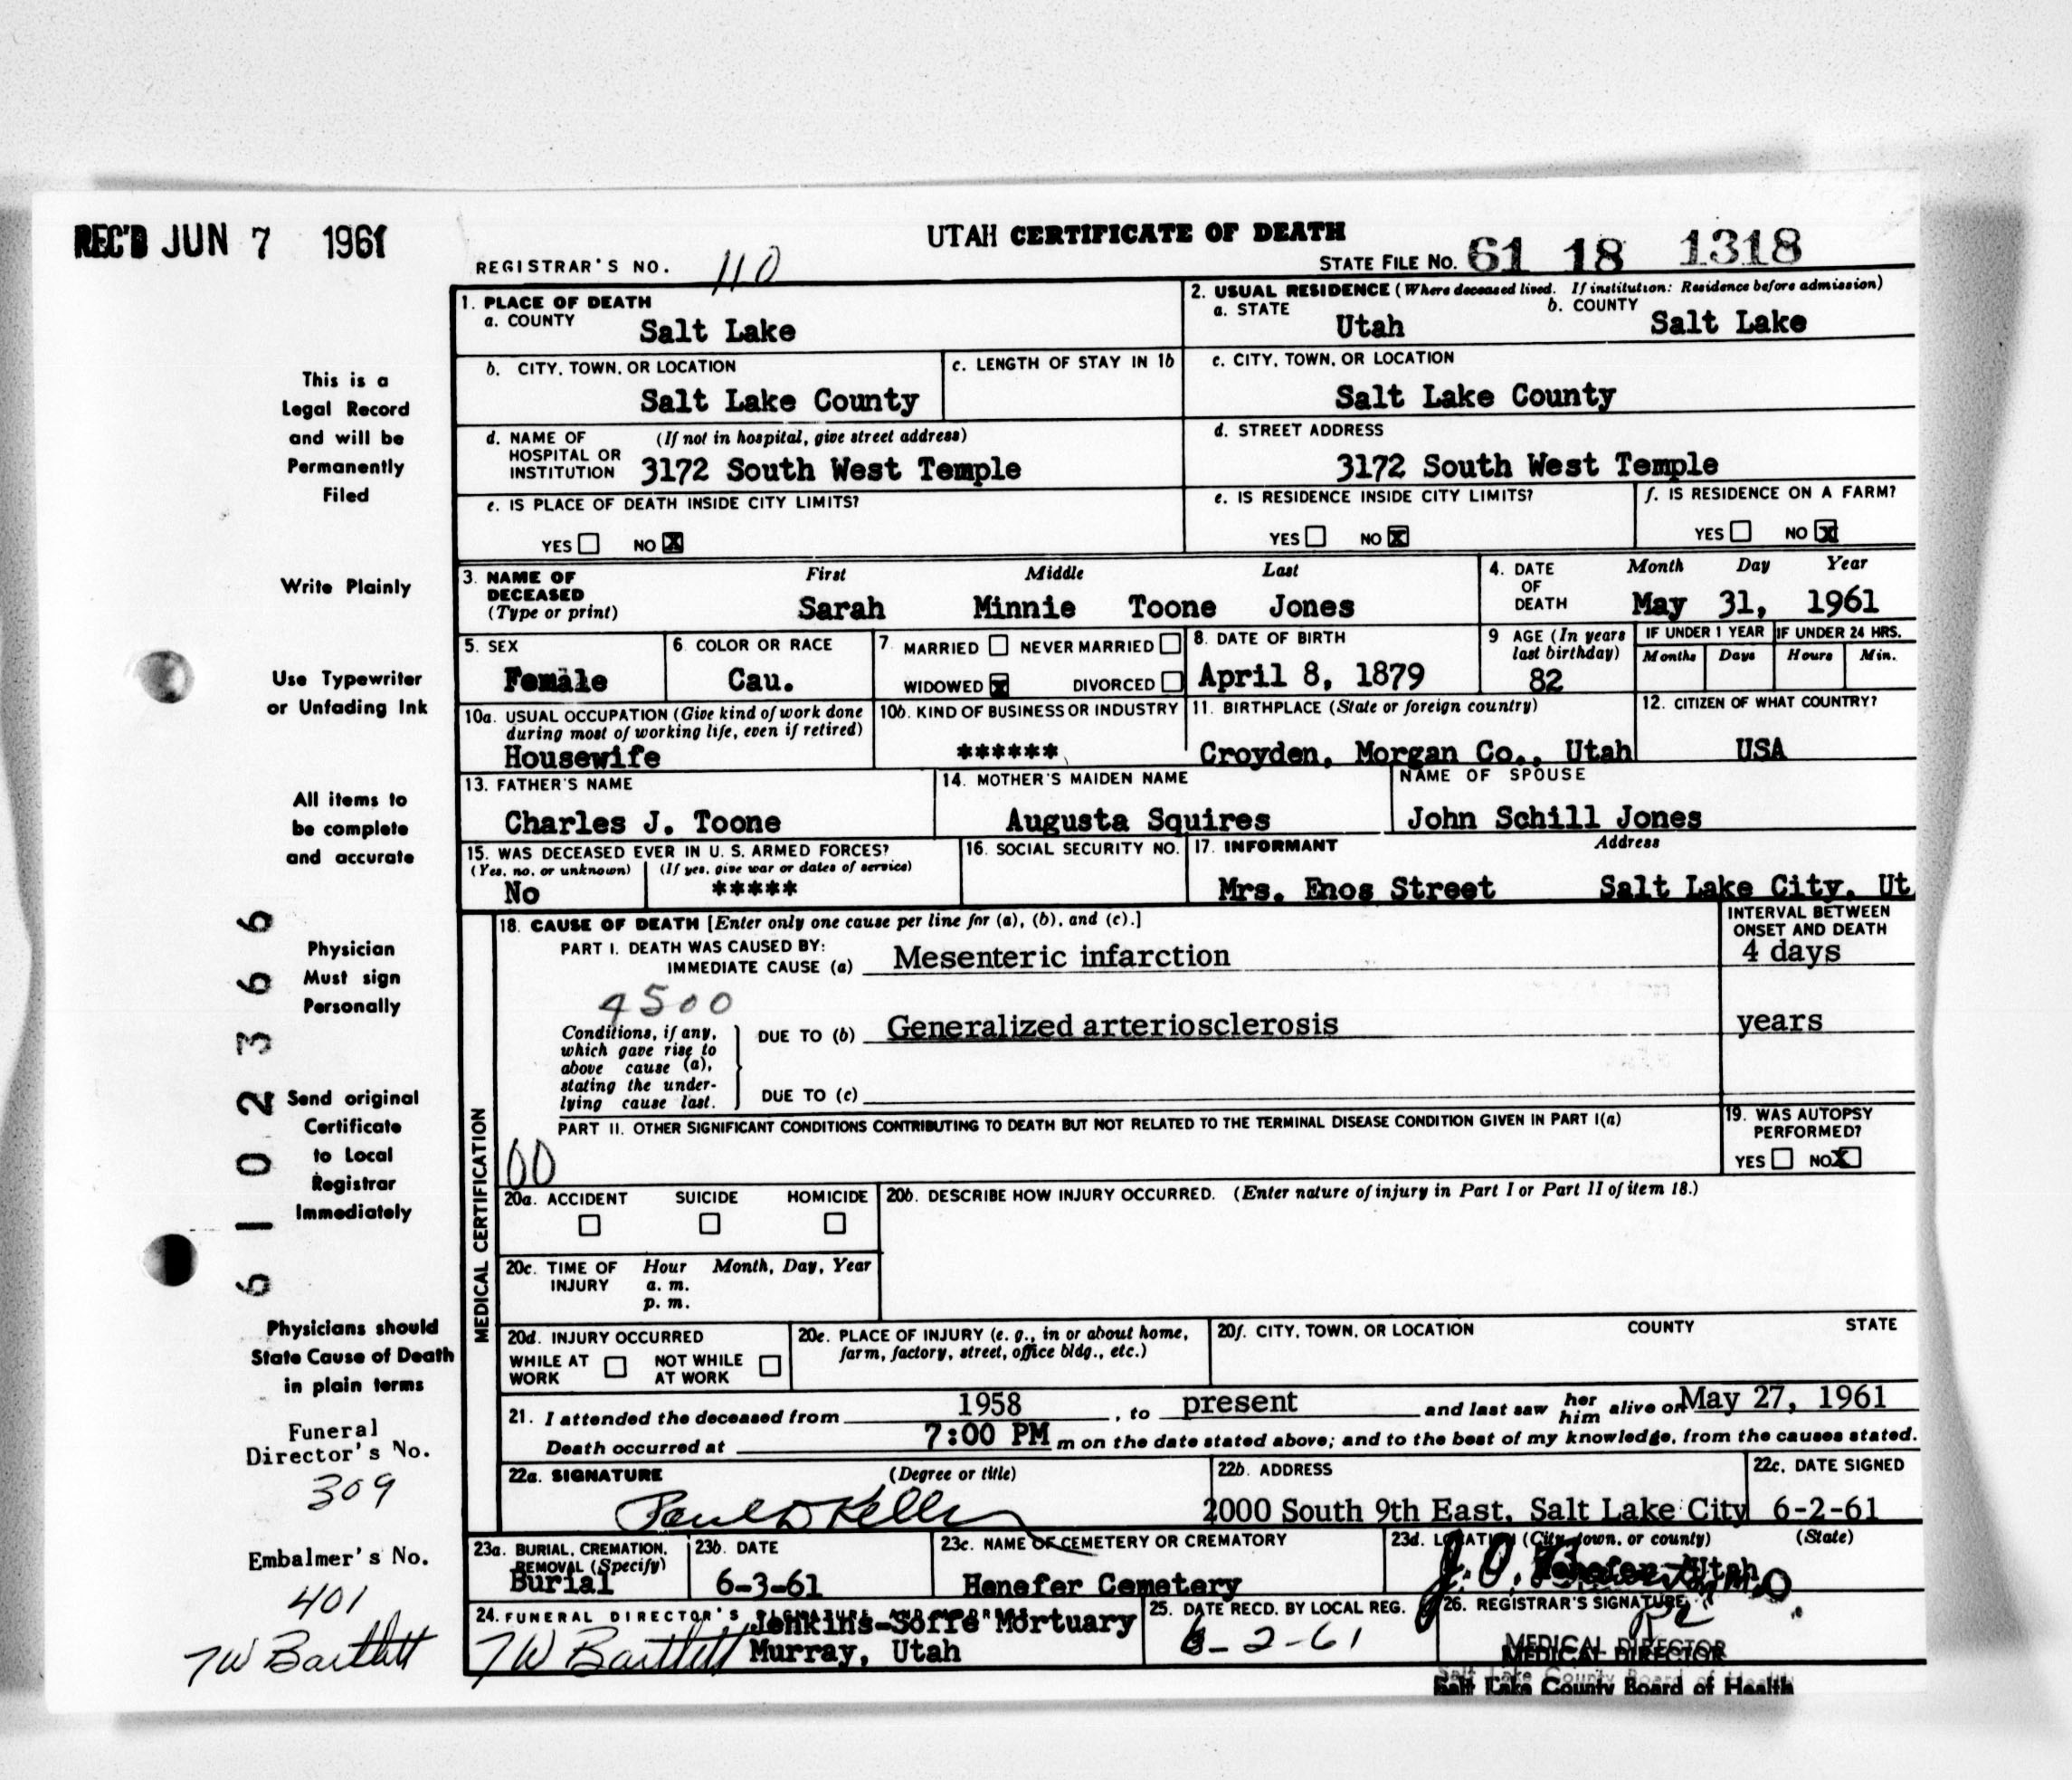 REC'D JUN 7 1961
UTAH CERTIFICATE OF DEATH
REGISTRAR'S NO. 110
STATE FILE NO. 61 18 1318
1. PLACE OF DEATH
a. COUNTY
Salt Lake
2. USUAL RESIDENCE (Where deceased lived. If institution: Residence before admission)
a. STATE
Utah
b. COUNTY
Salt Lake
b. CITY, TOWN, OR LOCATION
Salt Lake County
c. LENGTH OF STAY IN 1b
c. CITY, TOWN, OR LOCATION
Salt Lake County
d. NAME OF HOSPITAL OR INSTITUTION
(If not in hospital, give street address)
3172 South West Temple
d. STREET ADDRESS
3172 South West Temple
e. IS PLACE OF DEATH INSIDE CITY LIMITS?
YES NO X
e. IS RESIDENCE INSIDE CITY LIMITS?
YES NO X
f. IS RESIDENCE ON A FARM?
YES NO X
3. NAME OF DECEASED
(Type or print)
First Middle Last
Sarah Minnie Toone Jones
4. DATE OF DEATH
Month Day Year
May 31, 1961
5. SEX
Female
6. COLOR OR RACE
Cau.
7. MARRIED NEVER MARRIED
WIDOWED X DIVORCED
8. DATE OF BIRTH
April 8, 1879
9 AGE (In years last birthday)
82
IF UNDER 1 YEAR
Months Days
IF UNDER 24 HRS.
Hours Min.
10a. USUAL OCCUPATION (Give kind of work done during most of working life, even if retired)
Housewife
10b. KIND OF BUSINESS OR INDUSTRY
******
11. BIRTHPLACE (State or foreign country)
Croyden, Morgan Co., Utah
12. CITIZEN OF WHAT COUNTRY?
USA
13. FATHER'S NAME
Charles J. Toone
14. MOTHER'S MAIDEN NAME
Augusta Squires
NAME OF SPOUSE
John Schill Jones
15. WAS DECEASED EVER IN U. S. ARMED FORCES?
(Yes, no, or unknown) (If yes, give war or dates of service)
No *****
16. SOCIAL SECURITY NO.
17. INFORMANT Address
Mrs. Enos Street Salt Lake City, Ut
MEDICAL CERTIFICATION
18. CAUSE OF DEATH [Enter only one cause per line for (a), (b), and (c).]
INTERVAL BETWEEN ONSET AND DEATH
PART I. DEATH WAS CAUSED BY:
IMMEDIATE CAUSE (a) Mesenteric infarction
4 days
4500
Conditions, if any, which gave rise to above cause (a), stating the underlying cause last.
DUE TO (b) Generalized arteriosclerosis
years
DUE TO (c)
PART II. OTHER SIGNIFICANT CONDITIONS CONTRIBUTING TO DEATH BUT NOT RELATED TO THE TERMINAL DISEASE CONDITION GIVEN IN PART I(a)
00
19. WAS AUTOPSY PERFORMED?
YES NO X
20a. ACCIDENT SUICIDE HOMICIDE
20b. DESCRIBE HOW INJURY OCCURRED. (Enter nature of injury in Part I or Part II of item 18.)
20c. TIME OF INJURY
Hour Month, Day, Year
a. m.
p. m.
20d. INJURY OCCURRED
WHILE AT WORK NOT WHILE AT WORK
20e. PLACE OF INJURY (e. g., in or about home, farm, factory, street, office bldg., etc.)
20f. CITY, TOWN, OR LOCATION COUNTY STATE
21. I attended the deceased from 1958, to present and last saw her him alive on May 27, 1961
Death occurred at 7:00 PM m on the date stated above; and to the best of my knowledge, from the causes stated.
22a. SIGNATURE (Degree or title)
22b. ADDRESS
2000 South 9th East, Salt Lake City
22c. DATE SIGNED
6-2-61
23a. BURIAL, CREMATION, REMOVAL (Specify)
Burial
23b. DATE
6-3-61
23c. NAME OF CEMETERY OR CREMATORY
Henefer Cemetery
23d. LOCATION (City, town, or county) (State)
Henefer Utah
24. FUNERAL DIRECTOR'S
TW Bartlett
Jenkins-Soffe Mortuary
Murray, Utah
25. DATE RECD. BY LOCAL REG.
6-2-61
26. REGISTRAR'S SIGNATURE
MEDICAL DIRECTOR
Salt Lake County Board of Health
This is a
Legal Record
and will be
Permanently
Filed
Write Plainly
Use Typewriter
or Unfading Ink
All items to
be complete
and accurate
Physician
Must sign
Personally
Send original
Certificate
to Local
Registrar
Immediately
Physicians should
State Cause of Death
in plain terms
Funeral
Director's No.
309
Embalmer's No.
401
TW Bartlett
6102366